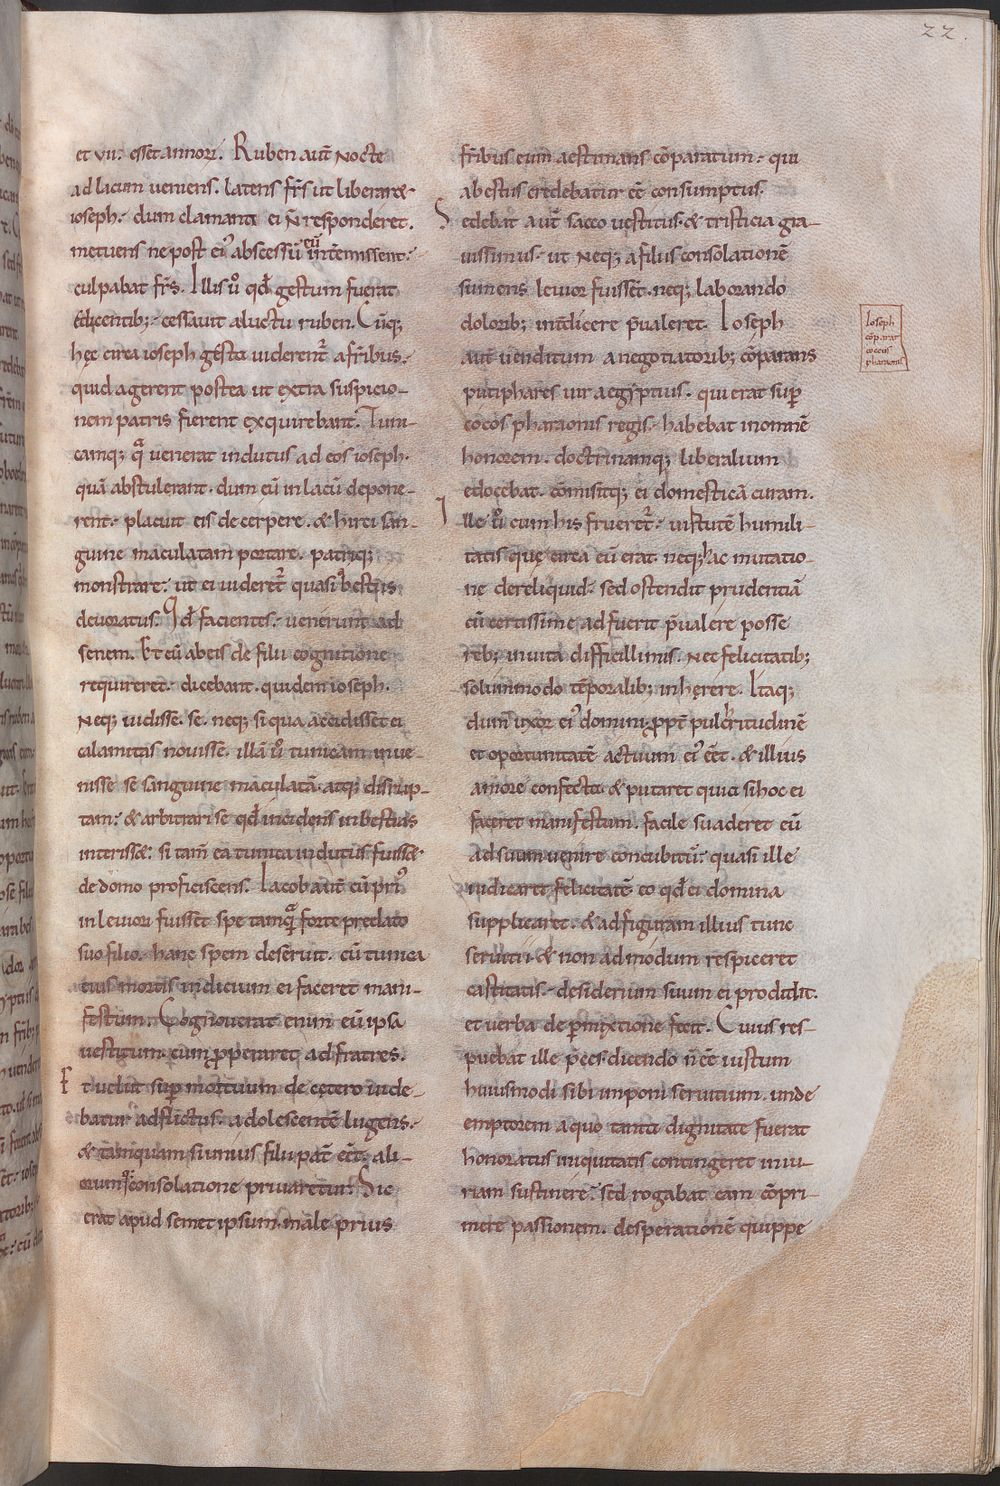 22.
et vii. esset annorū. Ruben aut̄ nocte
ad lacum veniens. latens fr̄s ut liberaret
ioseph. dum clamanti ei n̄ responderet.
metuens ne post ei᾽ abscessū eū intēmissent.
culpabat fr̄s. Illis ū qđ gestum fuerat
edicentib; cessavit aluctu ruben. Cūq;
hęc circa ioseph gesta uiderent᾽ afr̄ibus.
quid agerent postea ut extra suspicio-
nem patris fierent exquirebant. Tuni-
camq; q̄ venerat indutus ad eos ioseph.
quā abstulerant. dum eū in lacū depone-
rent. placuit eis decerpere. & hirci san-
guine maculatam portare. patriq;
monstrare. ut ei uideret᾽ quasi a bestiis
devoratus. Qđ facientes. venerunt ad
senem. Et cū abeis de filii cognitione
requireret. dicebant. quidem ioseph.
Neq; uidisse se. neq; si qua accidisset ei
calamitas novisse. illā ū tunicam inve-
nisse se sanguine maculatā. atq; disrup-
tam. & arbitrari se qđ incidens in bestias
interisset. si tam̄ ea tunica indutus fuisset
de domo proficiscens. Iacob aut̄ cū pri᾽
in leviori fuisset spe tamq̄ forte predato
suo filio. hanc spem deseruit. cū tunica
eius mortis indicium ei faceret mani-
festum. Cognoverat enim eū ipsa
vestitum. cum p̄peraret ad fratres.
Et velut sup mortuum de cętero uide-
batur adflictus. adolescentē lugens.
& tamquam sumius filii pat᾽ eet̄. ali-
orumq; consolatione privaretur. Sic
erat apud semet ipsum male prius
fr̄ibus eum aestimans cōparatum. qui
abestiis credebatur eē consumptus.
Sedebat aut̄ sacco vestitus. & tristicia gra-
uissimus. ut neq; afiliis consolationē
sumens levior fuisset. neq; laborando
dolorib; int̄dicere p̄valeret. Ioseph
aut̄ venditum anegotiatorib; cōparans
putiphares vir aegyptius. qui erat sup
cocos pharaonis regis. habebat in omnē
honorem. doctrinamq; liberalium
edocebat. cōmisitq; ei domesticā curam.
Ille ū cum his frueret᾽. virtutē humili-
tatis quę circa eū erat. neq; hac mutatio-
ne dereliquid. sed ostendit prudentiā
cū certissime adfuerit p̄valere posse
reb; in vita difficillimis. nec felicitatib;
solummodo tēporalib; inhęrere. Itaq;
dum uxor ei᾽ domini. ppt̄ pulcritudinē
et oportunitatē actuum ei᾽ eet̄. & illius
amore confecta. & putaret quia si hoc ei
faceret manifestum. facile suaderet eū
ad suum venire concubitū. quasi ille
iudicaret felicitatē. eo qđ ei domina
supplicaret. & ad figuram illius tunc
servitii. & non ad modum respiceret
castitatis. desiderium suum ei prodidit.
et verba de p̄mixtione fecit. Cuius res-
puebat ille p̄ces. dicendo n̄ eē iustum
huiusmodi sibi imponi servitium. unde
emptorem a quo tanta dignitate fuerat
honoratus iniquitatis contingeret iniu-
riam sustinere. sed rogabat eam cōpri-
mere passionem. desperationē quippe
Ioseph
cōparat᾽
cocus
pharaonis